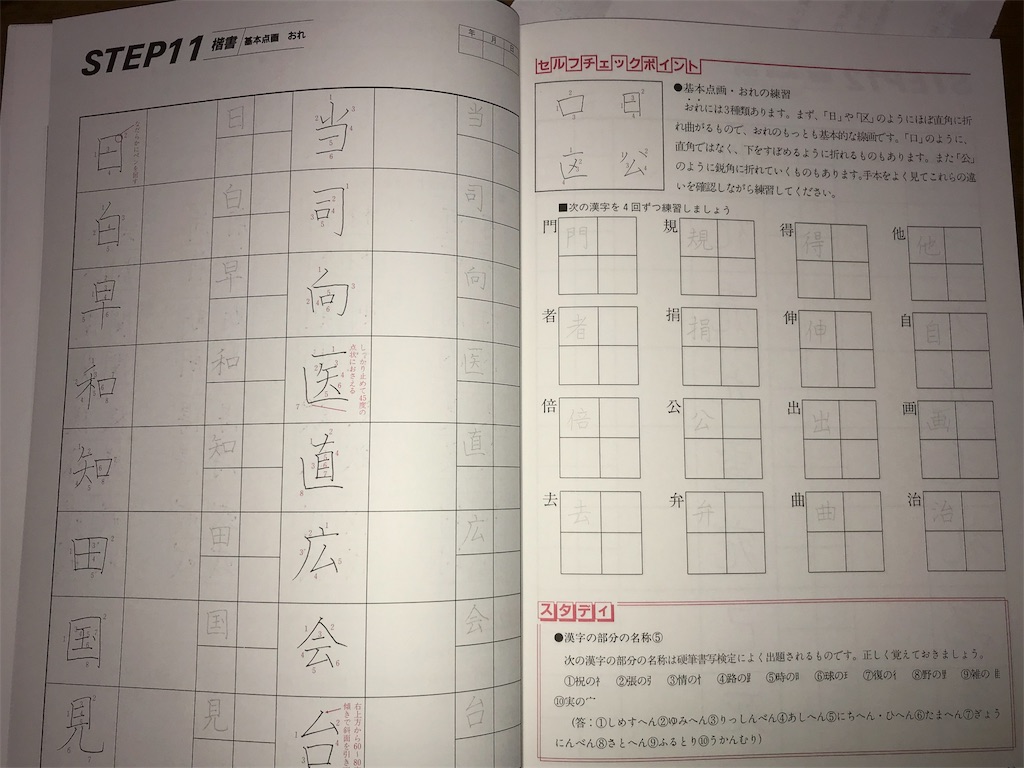 STEP11 楷書 基本点画 おれ
年 月 日
日 日
白 白
早 早
和 和
知 知
田 田
国 国
見 見
当 当
司 司
向 向
医 医
しっかり止めて45度の
点状におさえる
直 直
広 広
会 会
台 台
右上方から60~80
傾きで斜画を引き
セルフチェックポイント
口 日
区 公
●基本点画・おれの練習
おれには3種類あります。まず、「日」や「区」のようにほぼ直角に折
れ曲がるもので、おれのもっとも基本的な線画です。「口」のように、
直角ではなく、下をすぼめるように折れるものもあります。また「公」
のように鋭角に折れていくものもあります。手本をよく見てこれらの違
いを確認しながら練習してください。
■次の漢字を4回ずつ練習しましょう
門 門 規 規 得 得 他 他
者 者 捐 捐 伸 伸 自 自
倍 倍 公 公 出 出 画 画
去 去 弁 弁 曲 曲 治 治
スタディ
●漢字の部分の名称⑤
次の漢字の部分の名称は硬筆書写検定によく出題されるものです。正しく覚えておきましょう。
①祝の礻 ②張の弓 ③情の忄 ④路の⻊ ⑤時の日 ⑥球の王 ⑦復の彳 ⑧野の里 ⑨雑の隹
⑩実の宀
(答:①しめすへん②ゆみへん③りっしんべん④あしへん⑤にちへん・ひへん⑥たまへん⑦ぎょう
にんべん⑧さとへん⑨ふるとり⑩うかんむり)